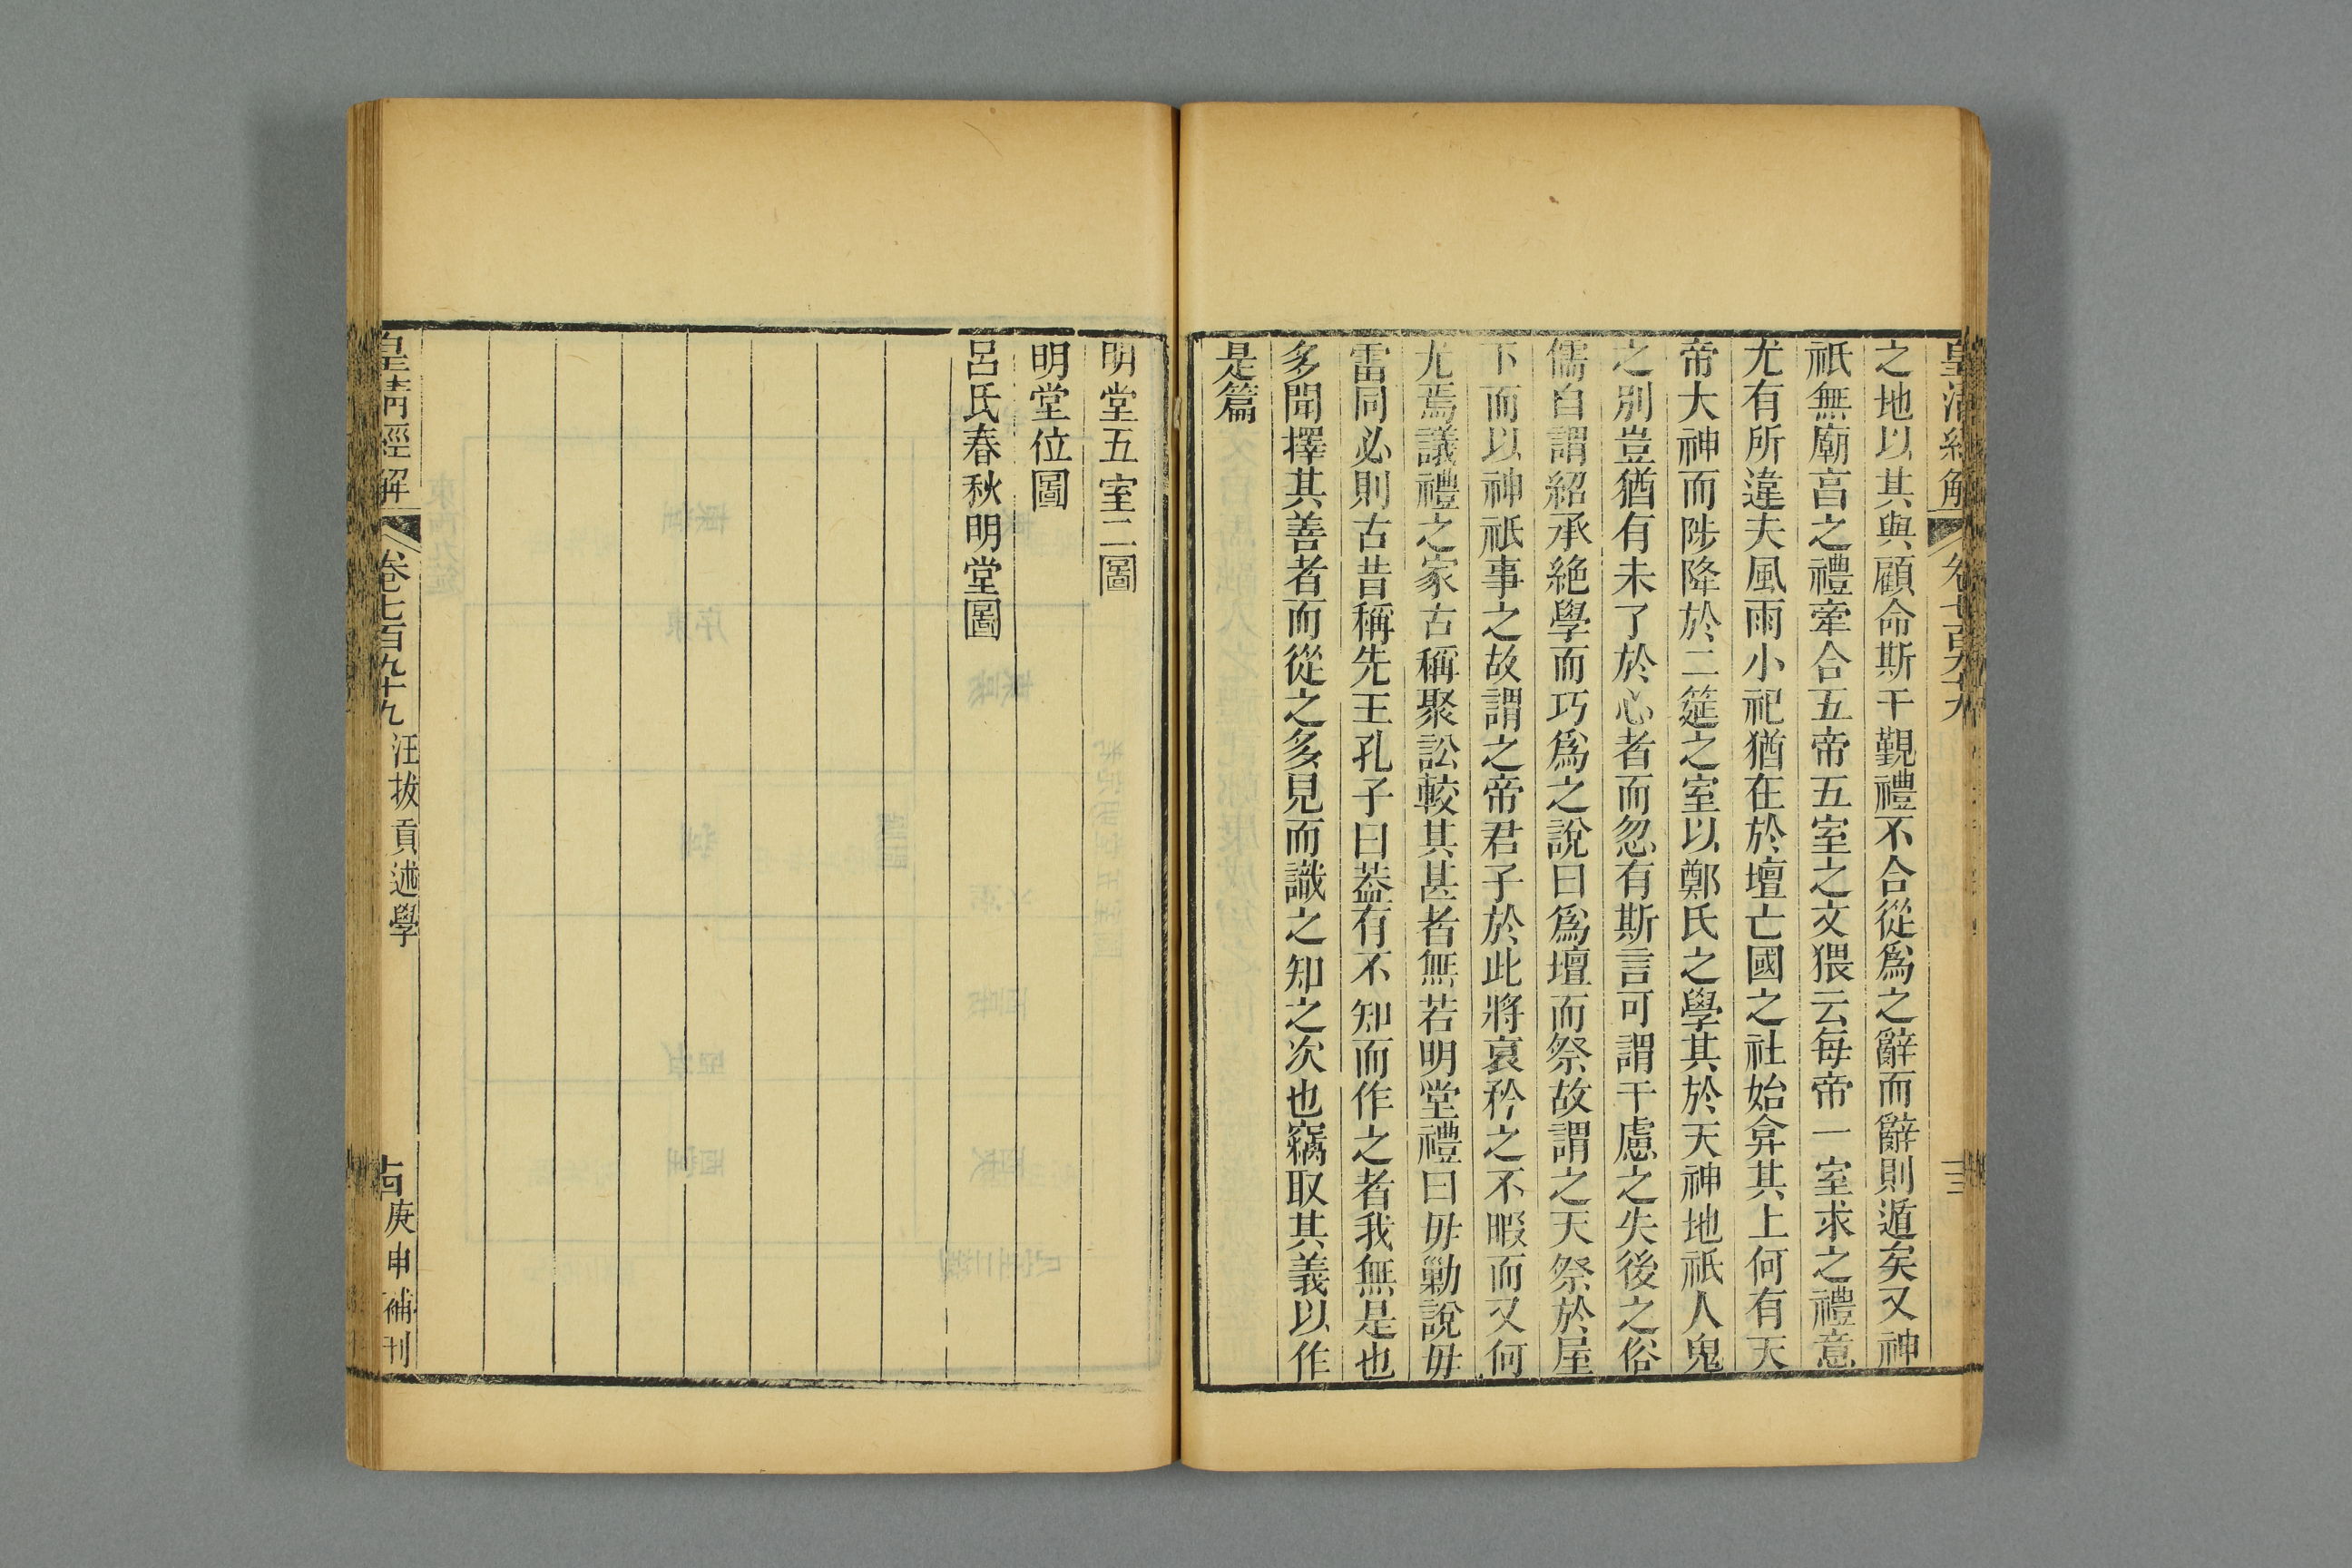 之地以其與顧命斯干覲禮不合從爲之辭而辭則遁矣又神
祇無廟亯之禮牽合五帝五室之文猥云每帝一室求之禮意
尤有所違夫風雨小祀猶在於壇亡國之社始弇其上何有天
帝大神而陟降於二筵之室以鄭氏之學其於天神地祇人鬼
之別豈猶有未了於心者而忽有斯言可謂千慮之失後之俗
儒自謂紹承絶學而巧爲之說曰爲壇而祭故謂之天祭於屋
下而以神祇事之故謂之帝君子於此將哀矜之不暇而又何
尤焉議禮之家古稱聚訟較其甚者無若明堂禮曰毋勦說毋
雷同必則古昔稱先王孔子曰葢有不知而作之者我無是也
多聞擇其善者而從之多見而識之知之次也竊取其義以作
是篇
明堂五室二圖
明堂位圖
呂氏春秋明堂圖
皇清經解
卷七百九十九
汪拔貢述學
古
庚申補刊